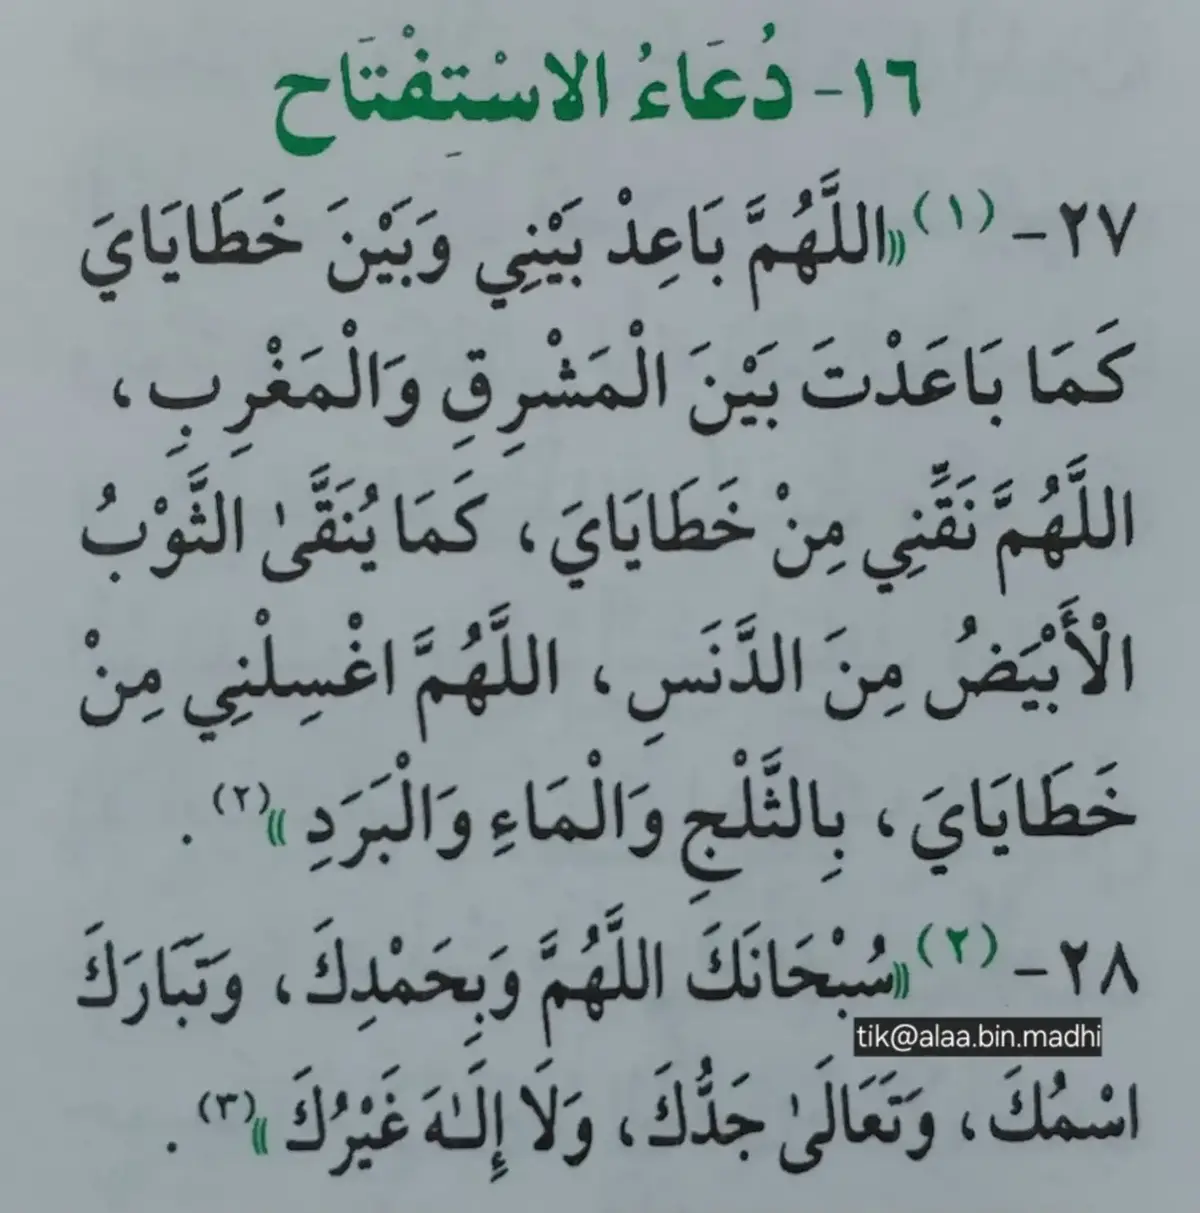 ١٦- دُعَاءُ الاسْتِفْتَاحِ
٢٧ - (١) ((اللَّهُمَّ بَاعِدْ بَيْنِي وَبَيْنَ خَطَايَايَ
كَمَا بَاعَدْتَ بَيْنَ الْمَشْرِقِ وَالْمَغْرِبِ،
اللَّهُمَّ نَقِّنِي مِنْ خَطَايَايَ، كَمَا يُنَقَّىٰ الثَّوْبُ
الْأَبْيَضُ مِنَ الدَّنَسِ، اللَّهُمَّ اغْسِلْنِي مِنْ
خَطَايَايَ، بِالثَّلْجِ وَالْمَاءِ وَالْبَرَدِ))(٢).
٢٨ - (٢) ((سُبْحَانَكَ اللَّهُمَّ وَبِحَمْدِكَ، وَتَبَارَكَ
tik@alaa.bin.madhi
اسْمُكَ، وَتَعَالَىٰ جَدُّكَ، وَلَا إِلَـٰهَ غَيْرُكَ))(٣).